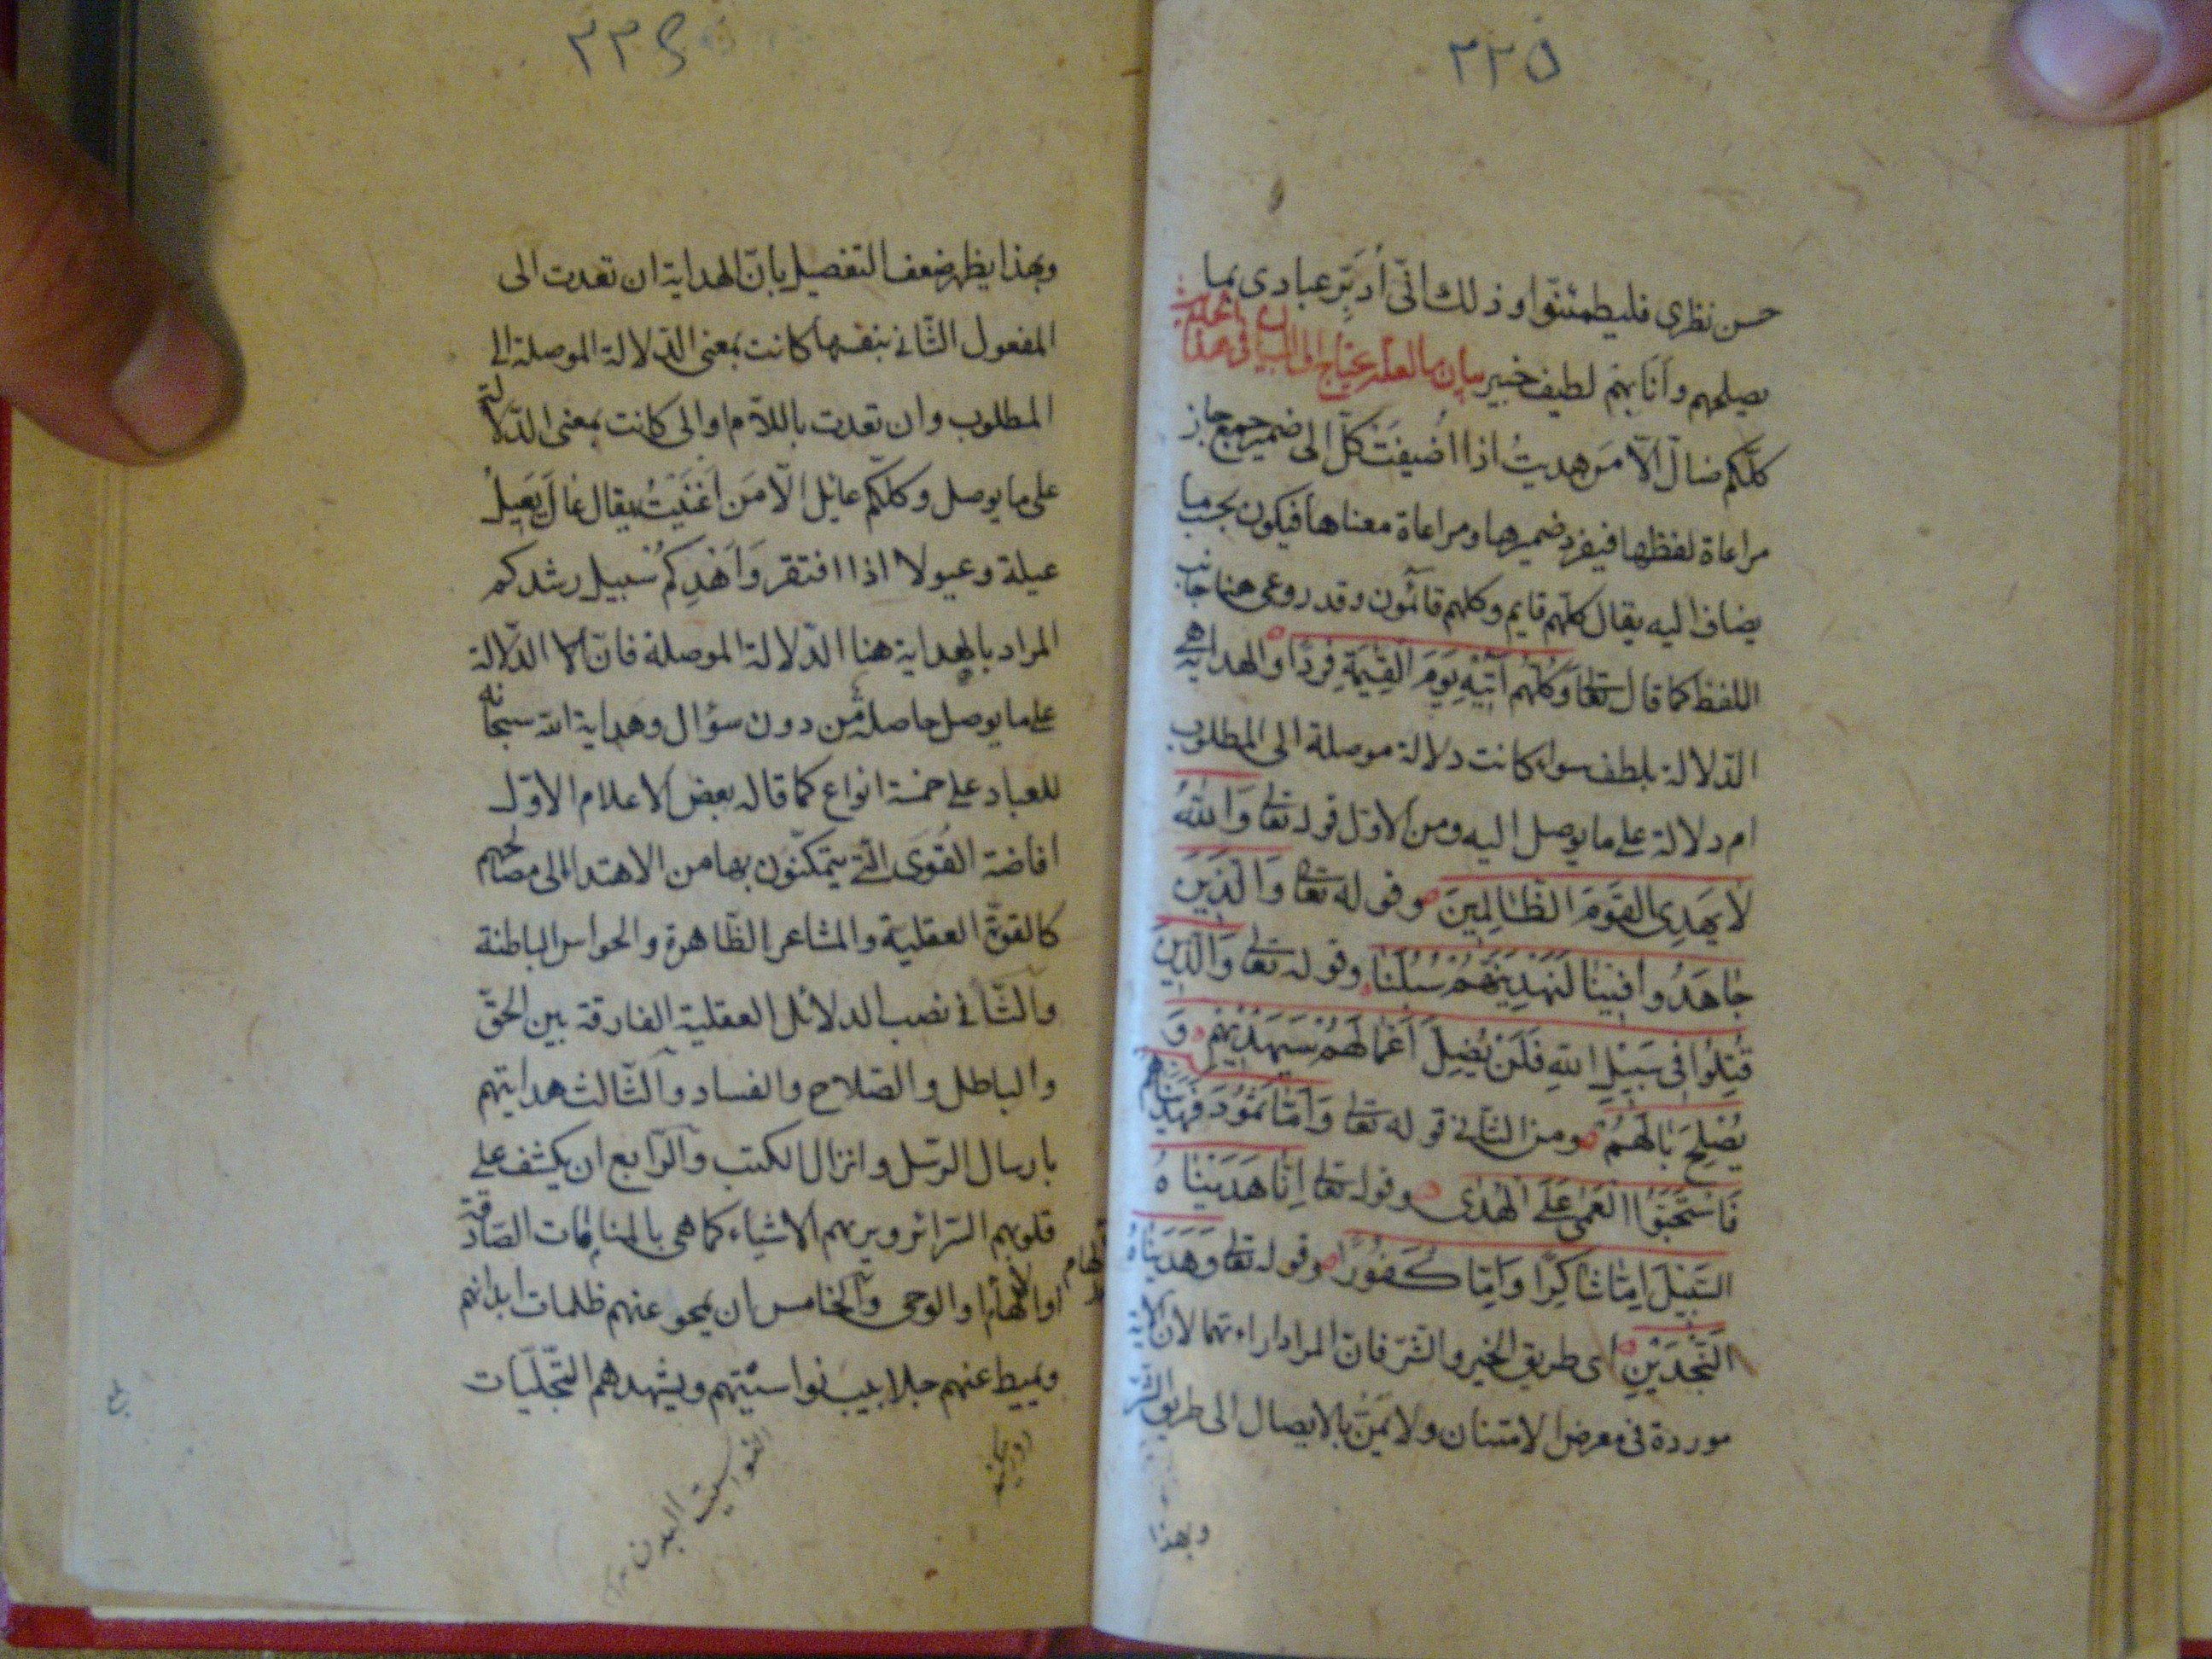 ٢٢٥
حسن نظرى فليطمئنوا وذلك انّى أدبّر عبادى بما
يصلحهم وأنا بهم لطيف خبير بيان ما لعله يحتاج الى البيان فى هذا الحديث
كلّكم ضالّ الّا من هديتُ اذا اُضيفت كلّ الى ضمير جمع جاز
مراعاة لفظها فيفرد ضميرها ومراعاة معناها فيكون بحسب ما
يضاف اليه يقال كلّهم قايم وكلهم قائمون وقد روعى هنا جانب
اللفظ كما قال تعالى وَكُلُّهُم آتِيْهِ يَومَ القِيٰمَةِ فَردًا والهداية هى
الدّلالة بلطف سواء كانت دلالة موصلة الى المطلوب
ام دلالة على ما يوصل اليه ومن الاوّل قوله تعالى وَاللهُ
لَا يَهدِى القَومَ الظَّالِمِينَ وقوله تعالى وَالَّذِينَ
جَاهَدُوا فِينَا لَنَهدِيَنَّهُم سُبُلَنَا وقوله تعالى وَالَّذِينَ
قُتِلُوا فِى سَبِيلِ اللهِ فَلَنْ يُضِلَّ اَعمَالَهُمْ سَيَهْدِيْهِم وَ
يُصْلِحُ بَالَهُمْ ومن الثّانى قوله تعالى وَاَمَّا ثَمُودُ فَهَدَيْنَاهُم
فَاسْتَحَبُّوا العَمٰى عَلَى الهُدٰى وقوله تعالى اِنَّا هَدَيْنَاهُ
السَّبِيْلَ اِمَّا شَاكِرًا وَاِمَّا كَفُورًا وقوله تعالى وَهَدَيْنَاهُ
النَّجْدَيْنِ اى طريق الخير والشّر فانّ المراد اراءتهما لان الآية
موردة فى معرض الامتنان ولا يمنّ بالايصال الى طريق الشّر
وبهذا
٢٢٦
وبهذا يظهر ضعف التفصيل بانّ الهداية ان تعدت الى
المفعول الثّانى بنفسها كانت بمعنى الدّلالة الموصلة الى
المطلوب وان تعدت باللاّم او الى كانت بمعنى الدّلالة
على ما يوصل وكلّكم عايل الّا مَن اَغْنَيْتُ يقال عَالَ يَعِيلُ
عيلة وعيولا اذا افتقر وَاَهْدِكُم سبيل رشدكم
المراد بالهداية هنا الدّلالة الموصلة فانّ الدّلالة
على ما يوصل حاصلة من دون سؤال وهداية الله سبحانه
للعباد على خمسة انواع كما قاله بعض الاعلام الاوّل
افاضة القُوى الّتى يتمكنون بها من الاهتداء الى مصالحهم
كالقوّة العقلية والمشاعر الظّاهرة والحواس الباطنة
والثّانى نصب الدلائل العقلية الفارقة بين الحقّ
والباطل والصّلاح والفساد والثّالث هدايتهم
بارسال الرّسل وانزال الكتب والرّابع ان يكشف على
قلوبهم السّرائر ويريهم الاشياء كما هى بالمنامات الصّادقة
او الالهام والوحى والخامس ان يمحو عنهم ظلمات ابدانهم
ويميط عنهم جلابيب نواسيتهم ويشهدهم التّجلّيات